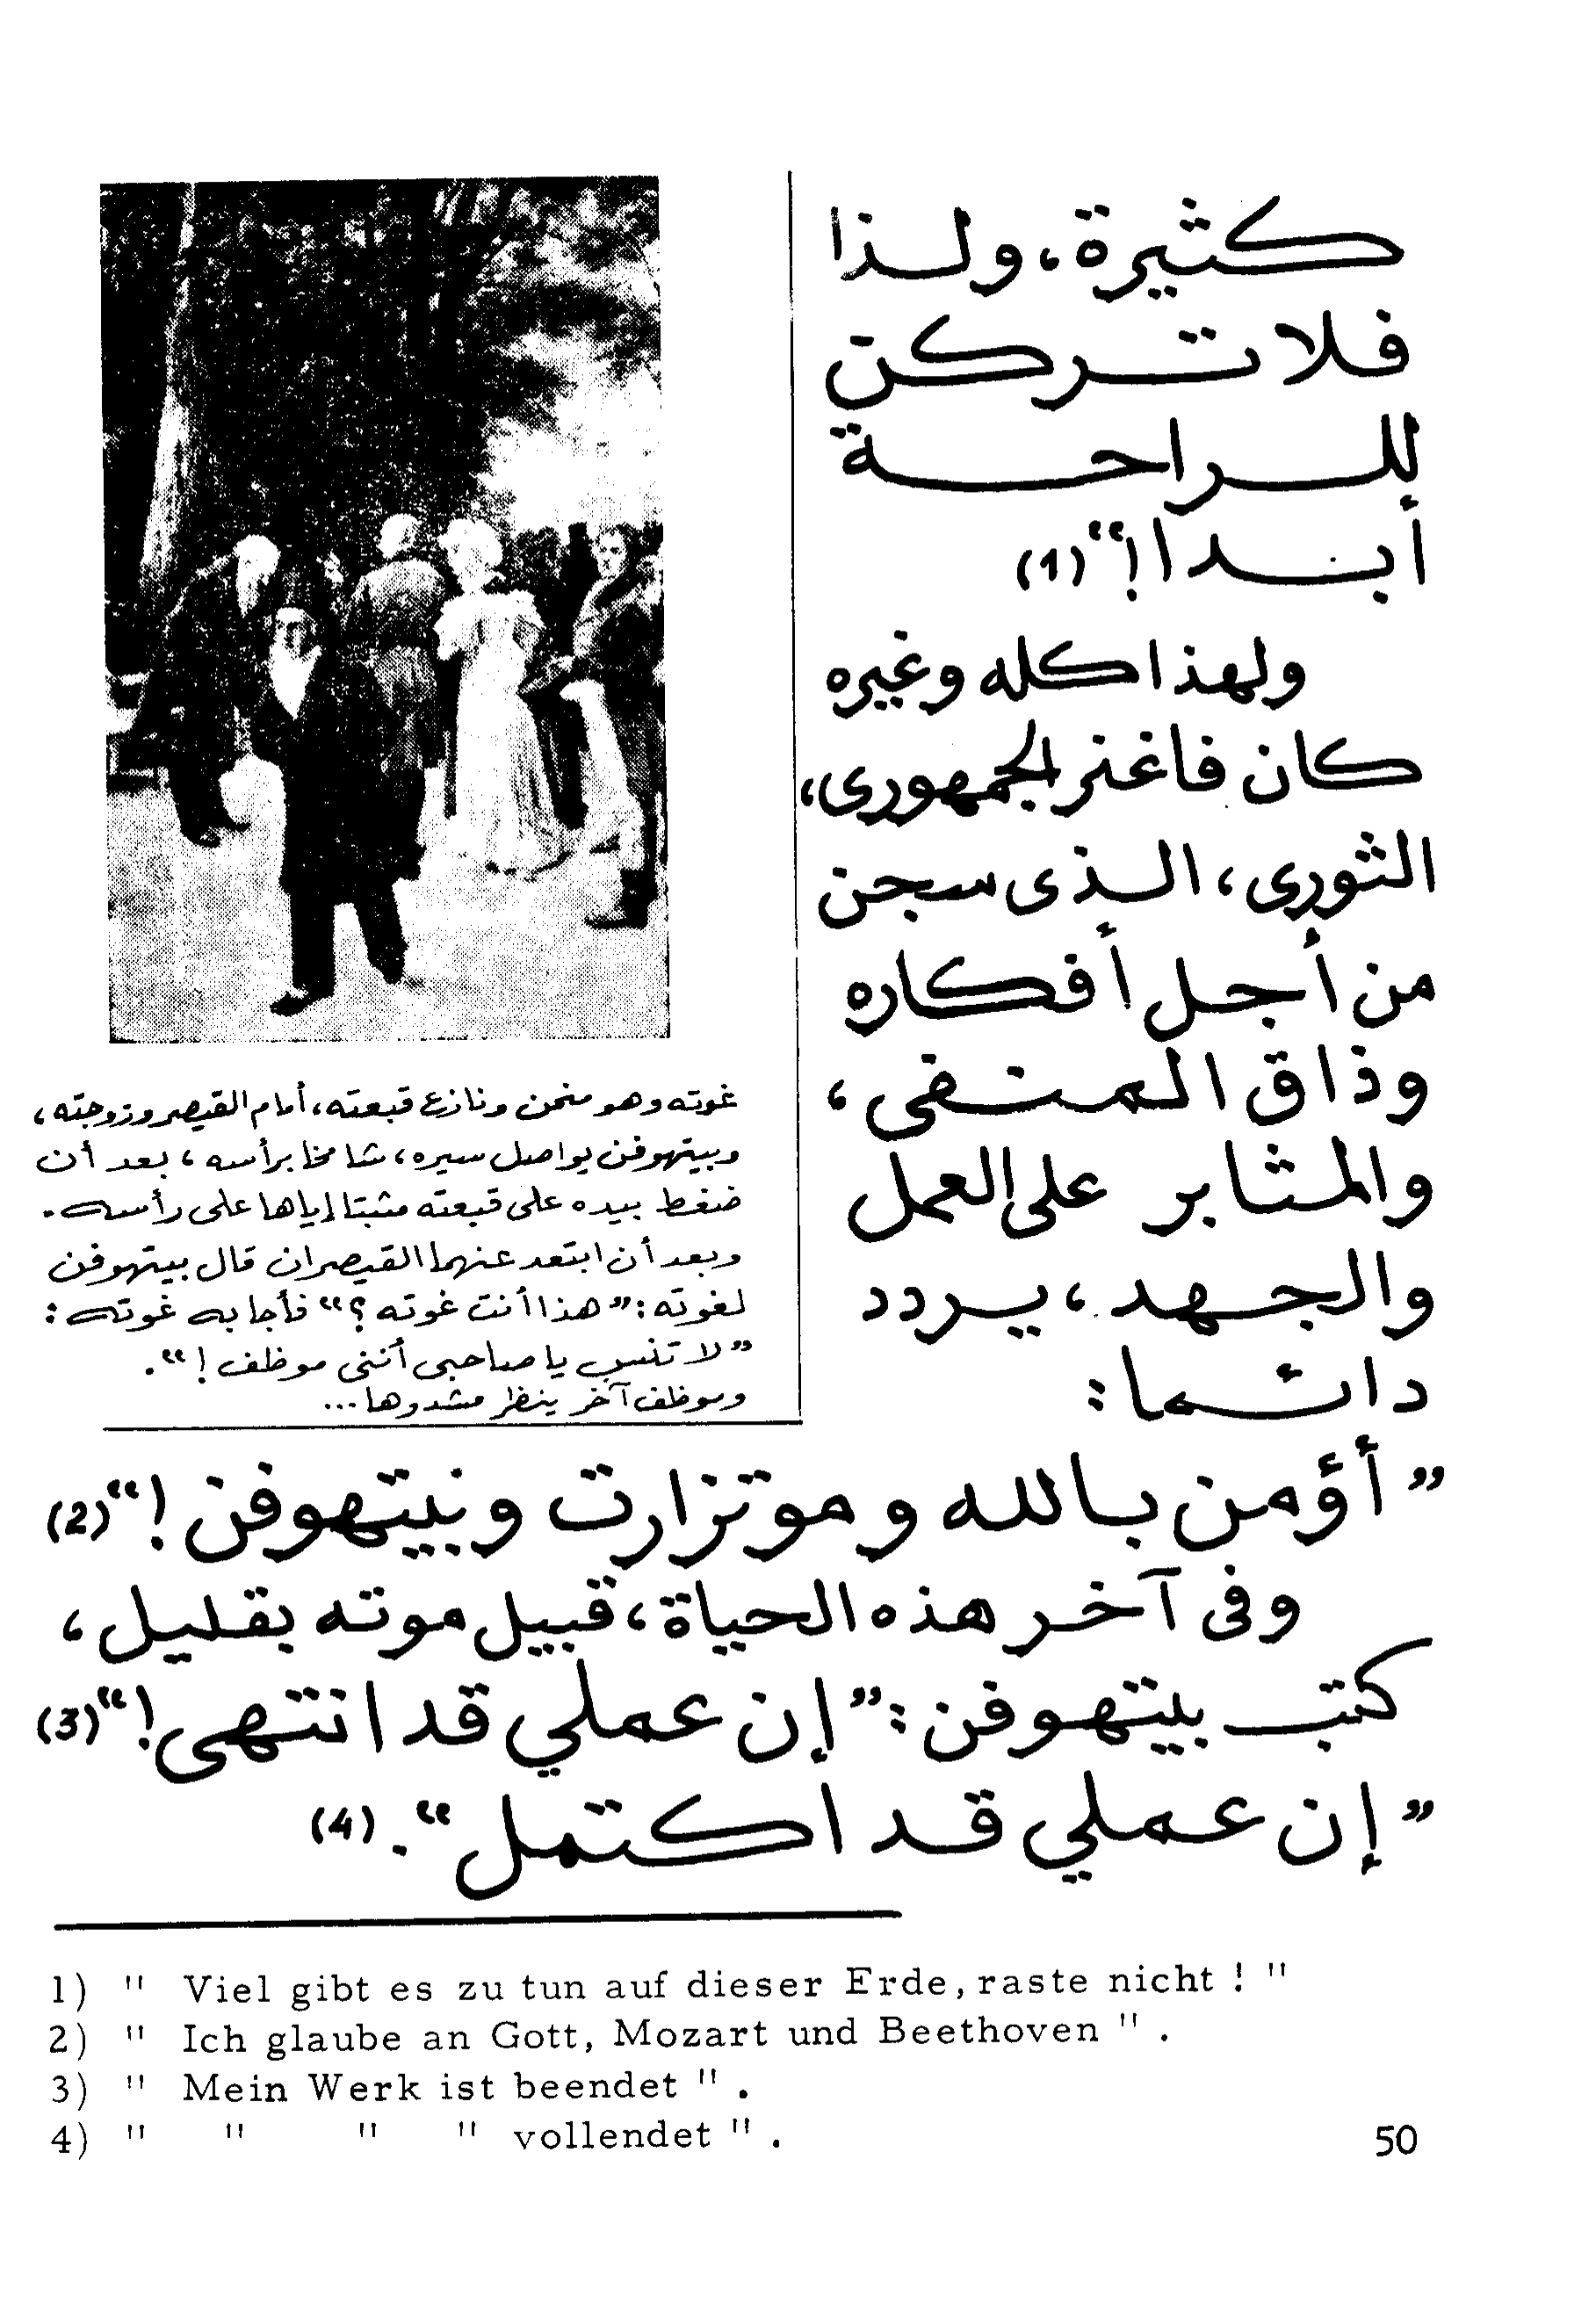 كثيرة، ولذا
فلا تركن
للراحة
أبدا!“ (1)
ولهذا كله وغيره
كان فاغنر الجمهورى،
الثورى، الذى سجن
من أجل أفكاره
وذاق المنفى،
والمثابر على العمل
والجهد، يردد
دائما:
غوته وهو منحن ونازع قبعته، أمام القيصر وزوجته،
وبيتهوفن يواصل سيره، شامخا برأسه، بعد أن
ضغط بيده على قبعته مثبتا إياها على رأسه.
وبعد أن ابتعد عنهما القيصران قال بيتهوفن
لغوته: ”هذا أنت غوته؟“ فأجابه غوته:
”لا تنس يا صاحبى أننى موظف!“.
وموظف آخر ينظر مشدوها...
”أؤمن بالله وموتزارت وبيتهوفن!“ (2)
وفى آخر هذه الحياة، قبيل موته بقليل،
كتب بيتهوفن: ”إن عملي قد انتهى!“ (3)
”إن عملي قد اكتمل“. (4)
1) " Viel gibt es zu tun auf dieser Erde, raste nicht ! "
2) " Ich glaube an Gott, Mozart und Beethoven " .
3) " Mein Werk ist beendet " .
4) " " " " vollendet " .
50